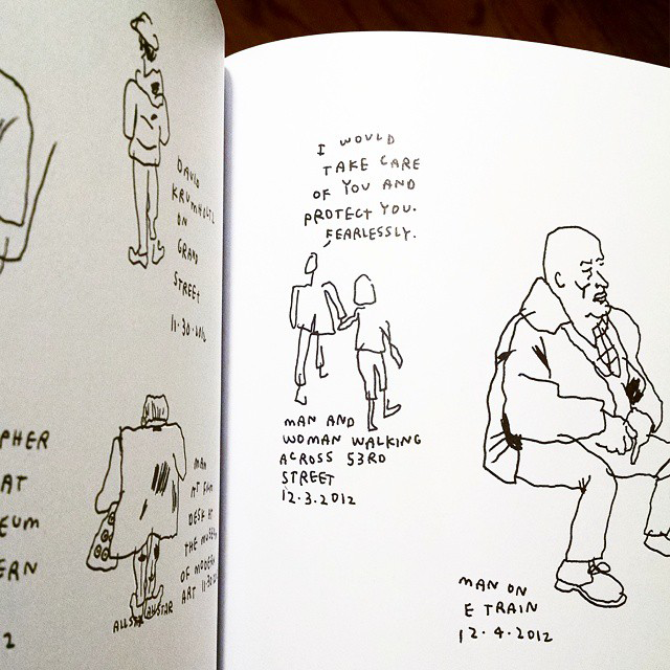 DAVID
KRUMHOLTZ
ON
GRAND
STREET
11.30.2012
PHER
AT
EUM
ERN
2
MAN
AT FILM
DESK AT
THE MUSEUM
OF MODERN
ART 11.30.2012
ALLSTAR ALLSTAR
I WOULD
TAKE CARE
OF YOU AND
PROTECT YOU.
FEARLESSLY.
MAN AND
WOMAN WALKING
ACROSS 53RD
STREET
12.3.2012
MAN ON
E TRAIN
12.4.2012